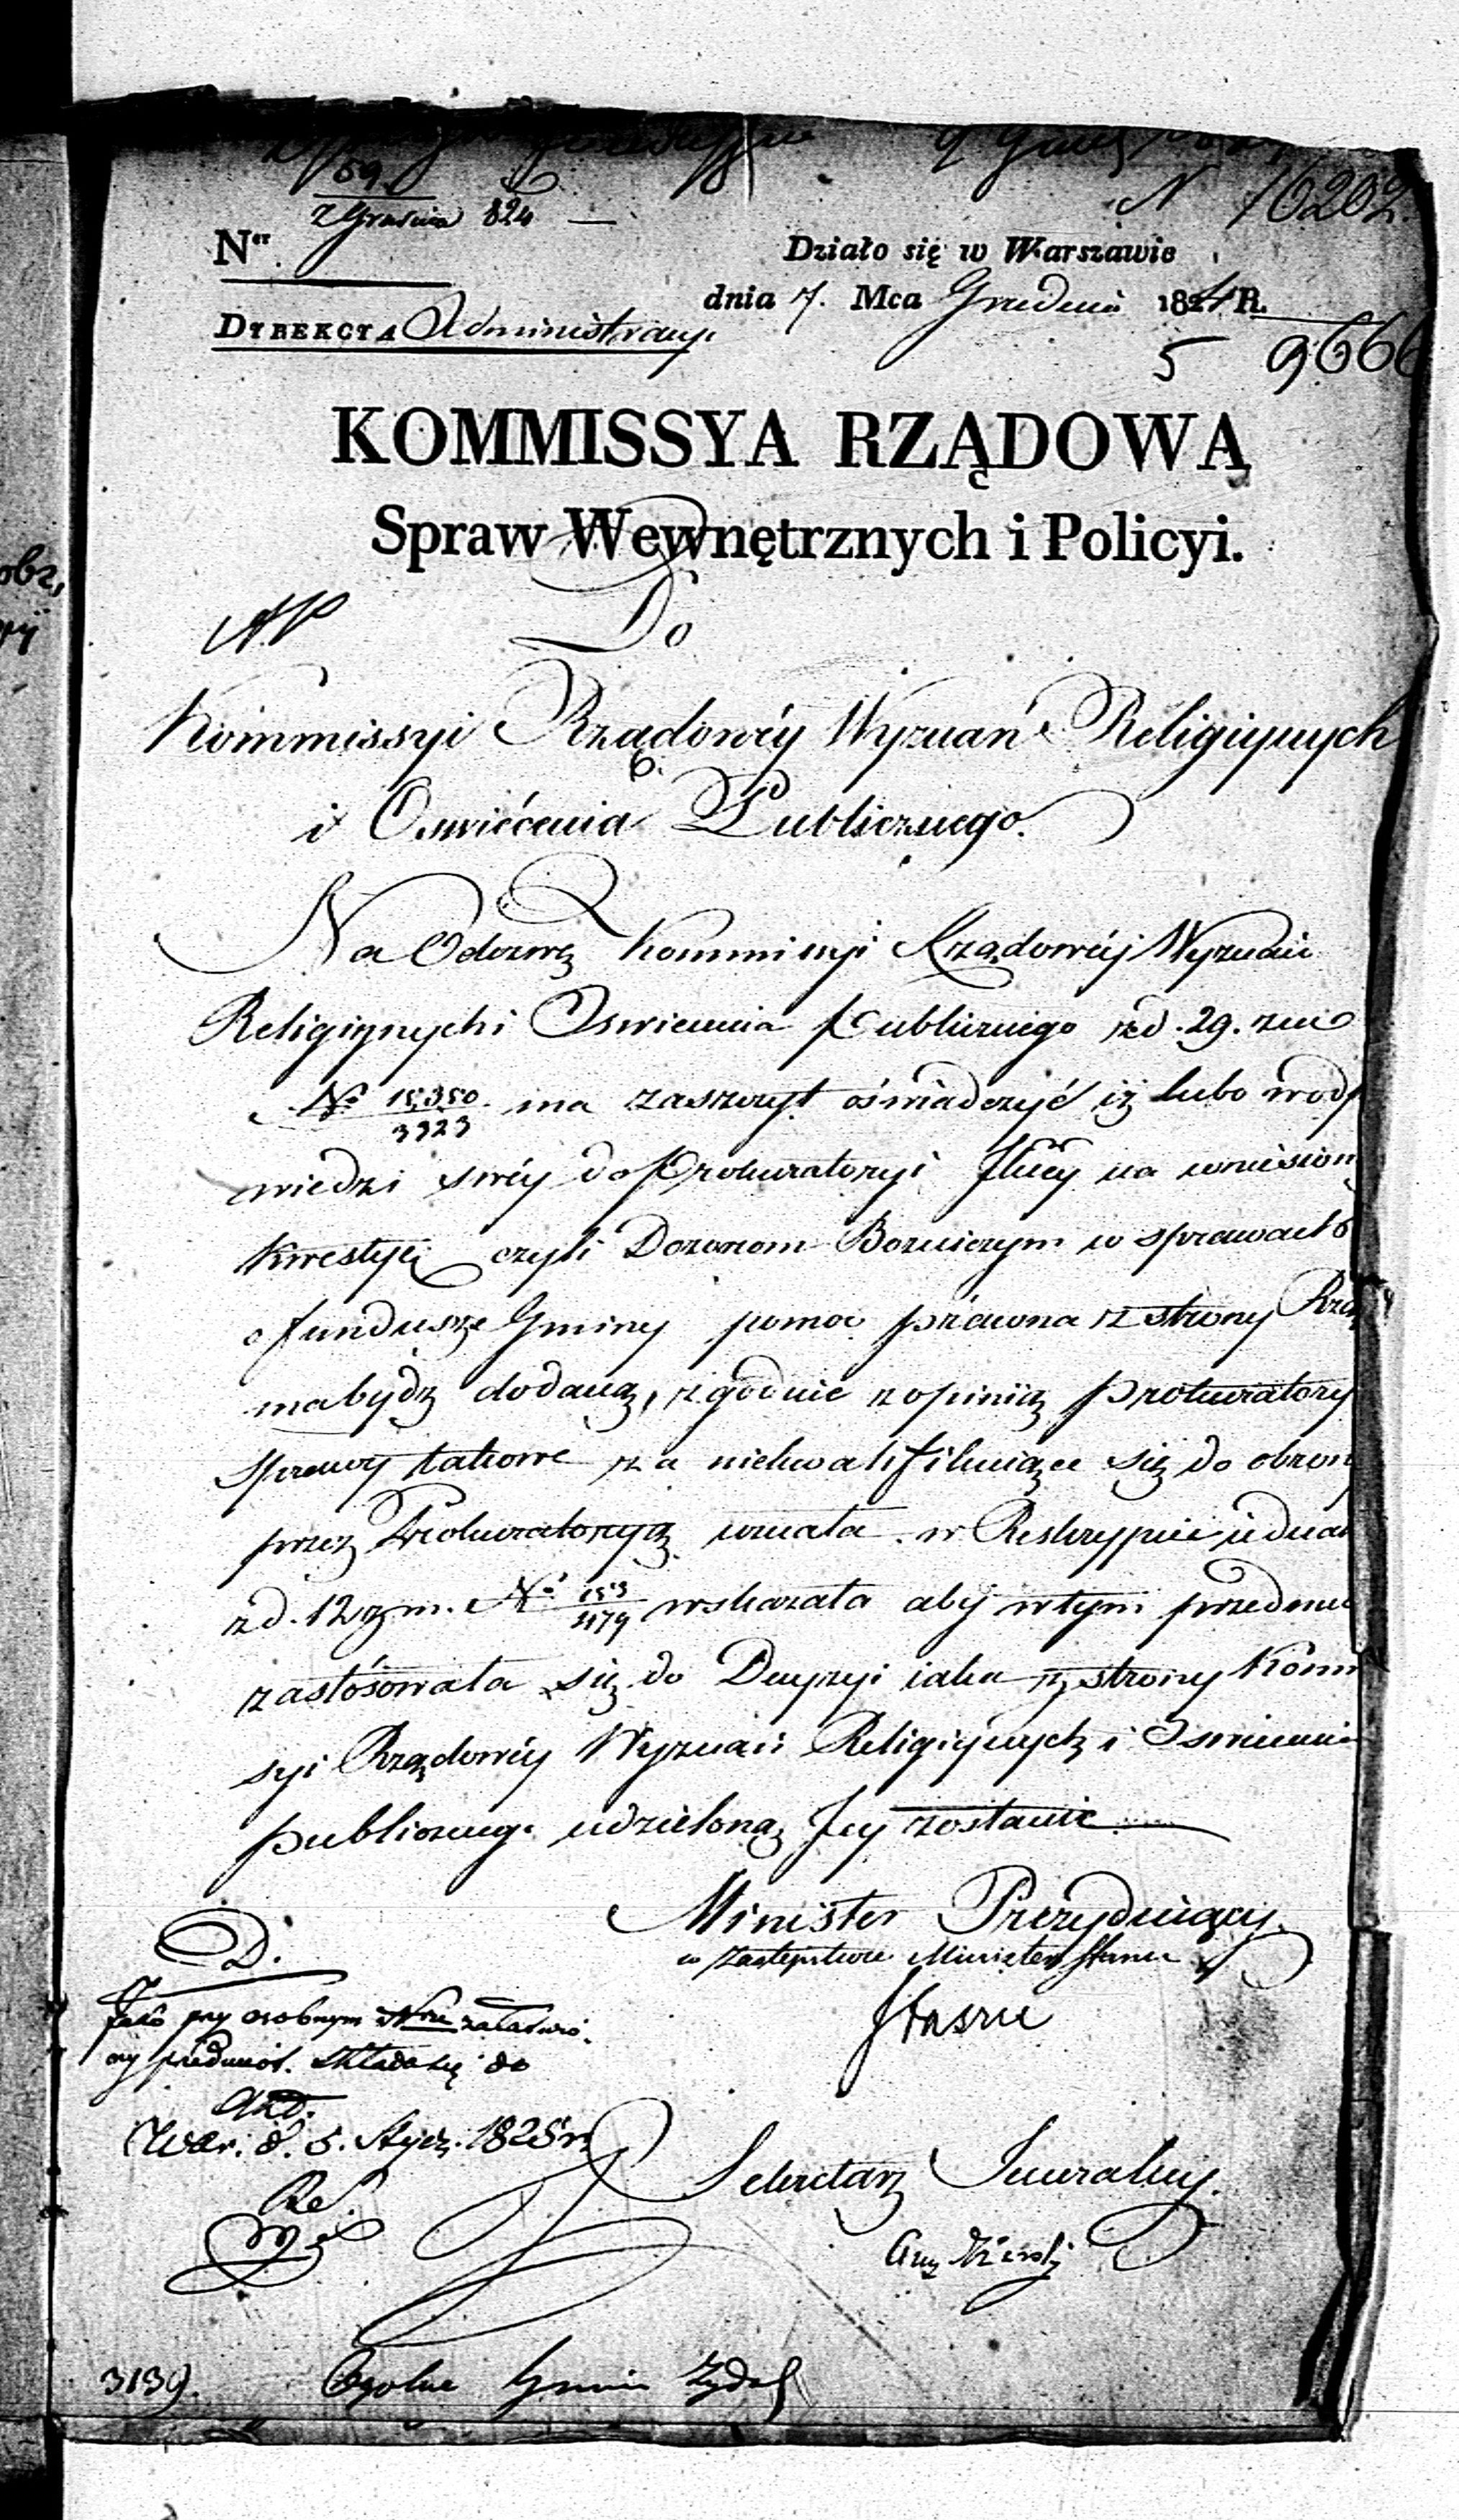 N 16202.
59
z Grudnia 824 —
Ner.
Działo się w Warszawie
dnia 7. Mca Grudnia 1824 R.
DYREKCYA Administracyi
5 9666
KOMMISSYA RZĄDOWA
Spraw Wewnętrznych i Policyi.
Do
Kommissyi Rządowéy Wyznań Religiynych
i Oswiécenia Publicznego.
Na Odezwę Kommissyi Rządowéj Wyznań
Religiynych i Oswiecenia Publicznego z d. 29. z m
No 15350 ma zaszczyt oświadczyć iż lubo w odp
3323
wiedzi swéy do Prokuratoryi Jlney na wniesion
kwestyę czyli Dozorom Bozniczym w sprawach
o fundusze Gminy pomoc prawna z strony Rzą
ma bydz dodaną, zgodnie z opinią Prokuratory
sprawy takowe za niekwalifikuiące się do obrony
przez Prokuratoryą uznała. w Reskrypcie iednak
z d. 12 z. m. No 153 wskazała aby w tym przedmi
4179
zastósowała się do Decyzyi iaka z strony Komm
syi Rządowéy Wyznań Religiynych i Oswieceni
publicznego udzieloną Jey zostanie
Minister Prezyduiący.
w zastępstwie Minister Stanu
Staszic
D.
Jako przy osobnym Nrze załatwio-
ny przedmiot. składa się do
Akt.
War. d. 5. Stycz. 1825 r.
Sekretarz Jeneralny.
3139.
Ogolne Gmin Żydo